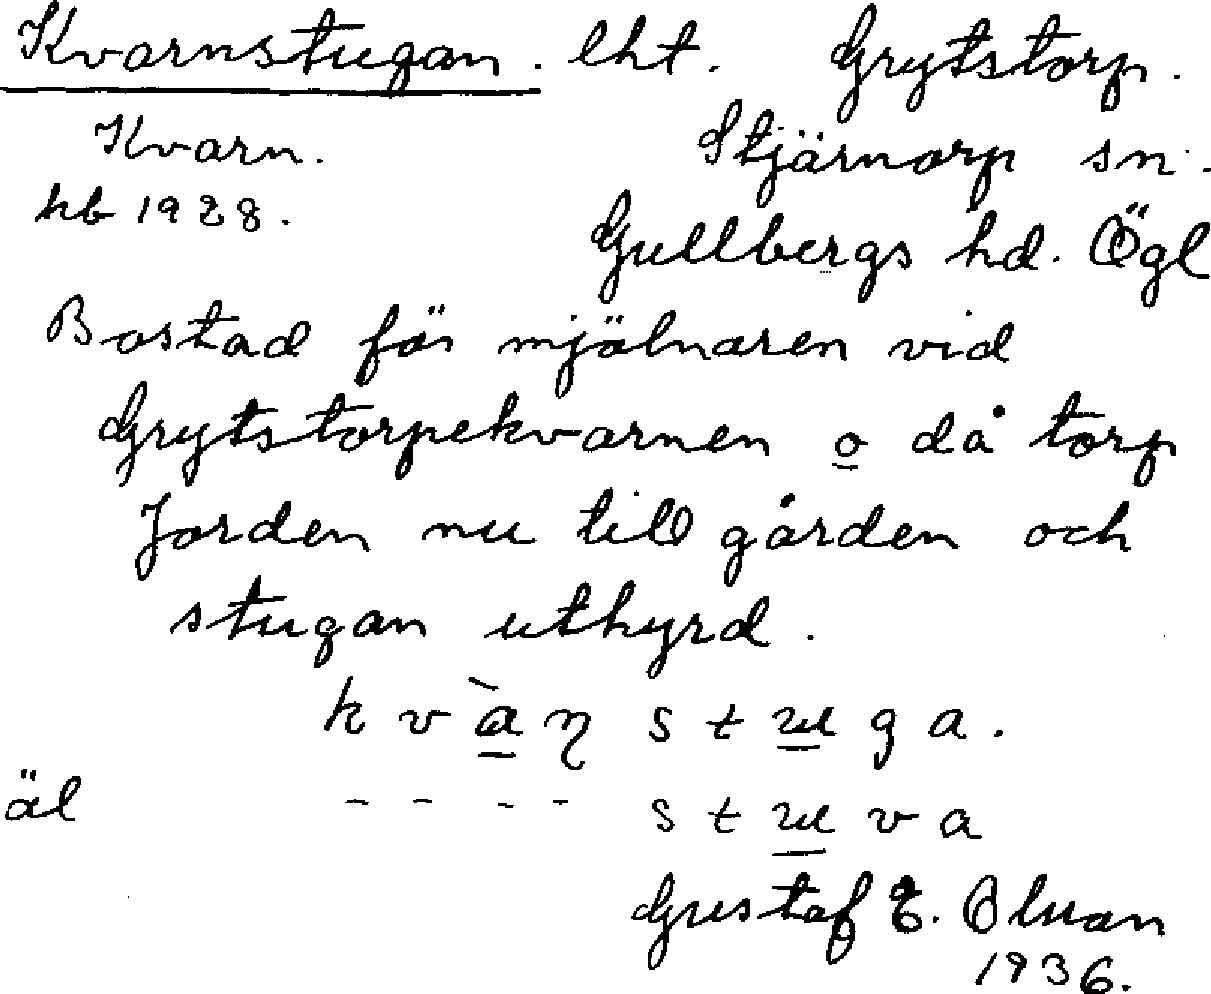 Kvarnstugan. lht. Grytstorp.
Kvarn. Stjärnorp sn.
hb 1928. Gullbergs hd. Ögl
Bostad för mjölnaren vid
Grytstorpekvarnen o då torp
Jorden nu till gården och
stugan uthyrd.
k v à η s t u g a.
äl - - - - s t u v a
Gustaf E. Olsson
1936.